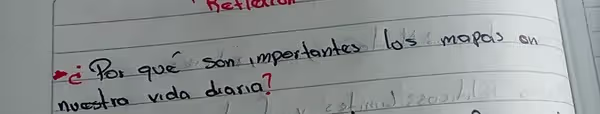 ¿Por qué son importantes los mapas en
nuestra vida diaria?